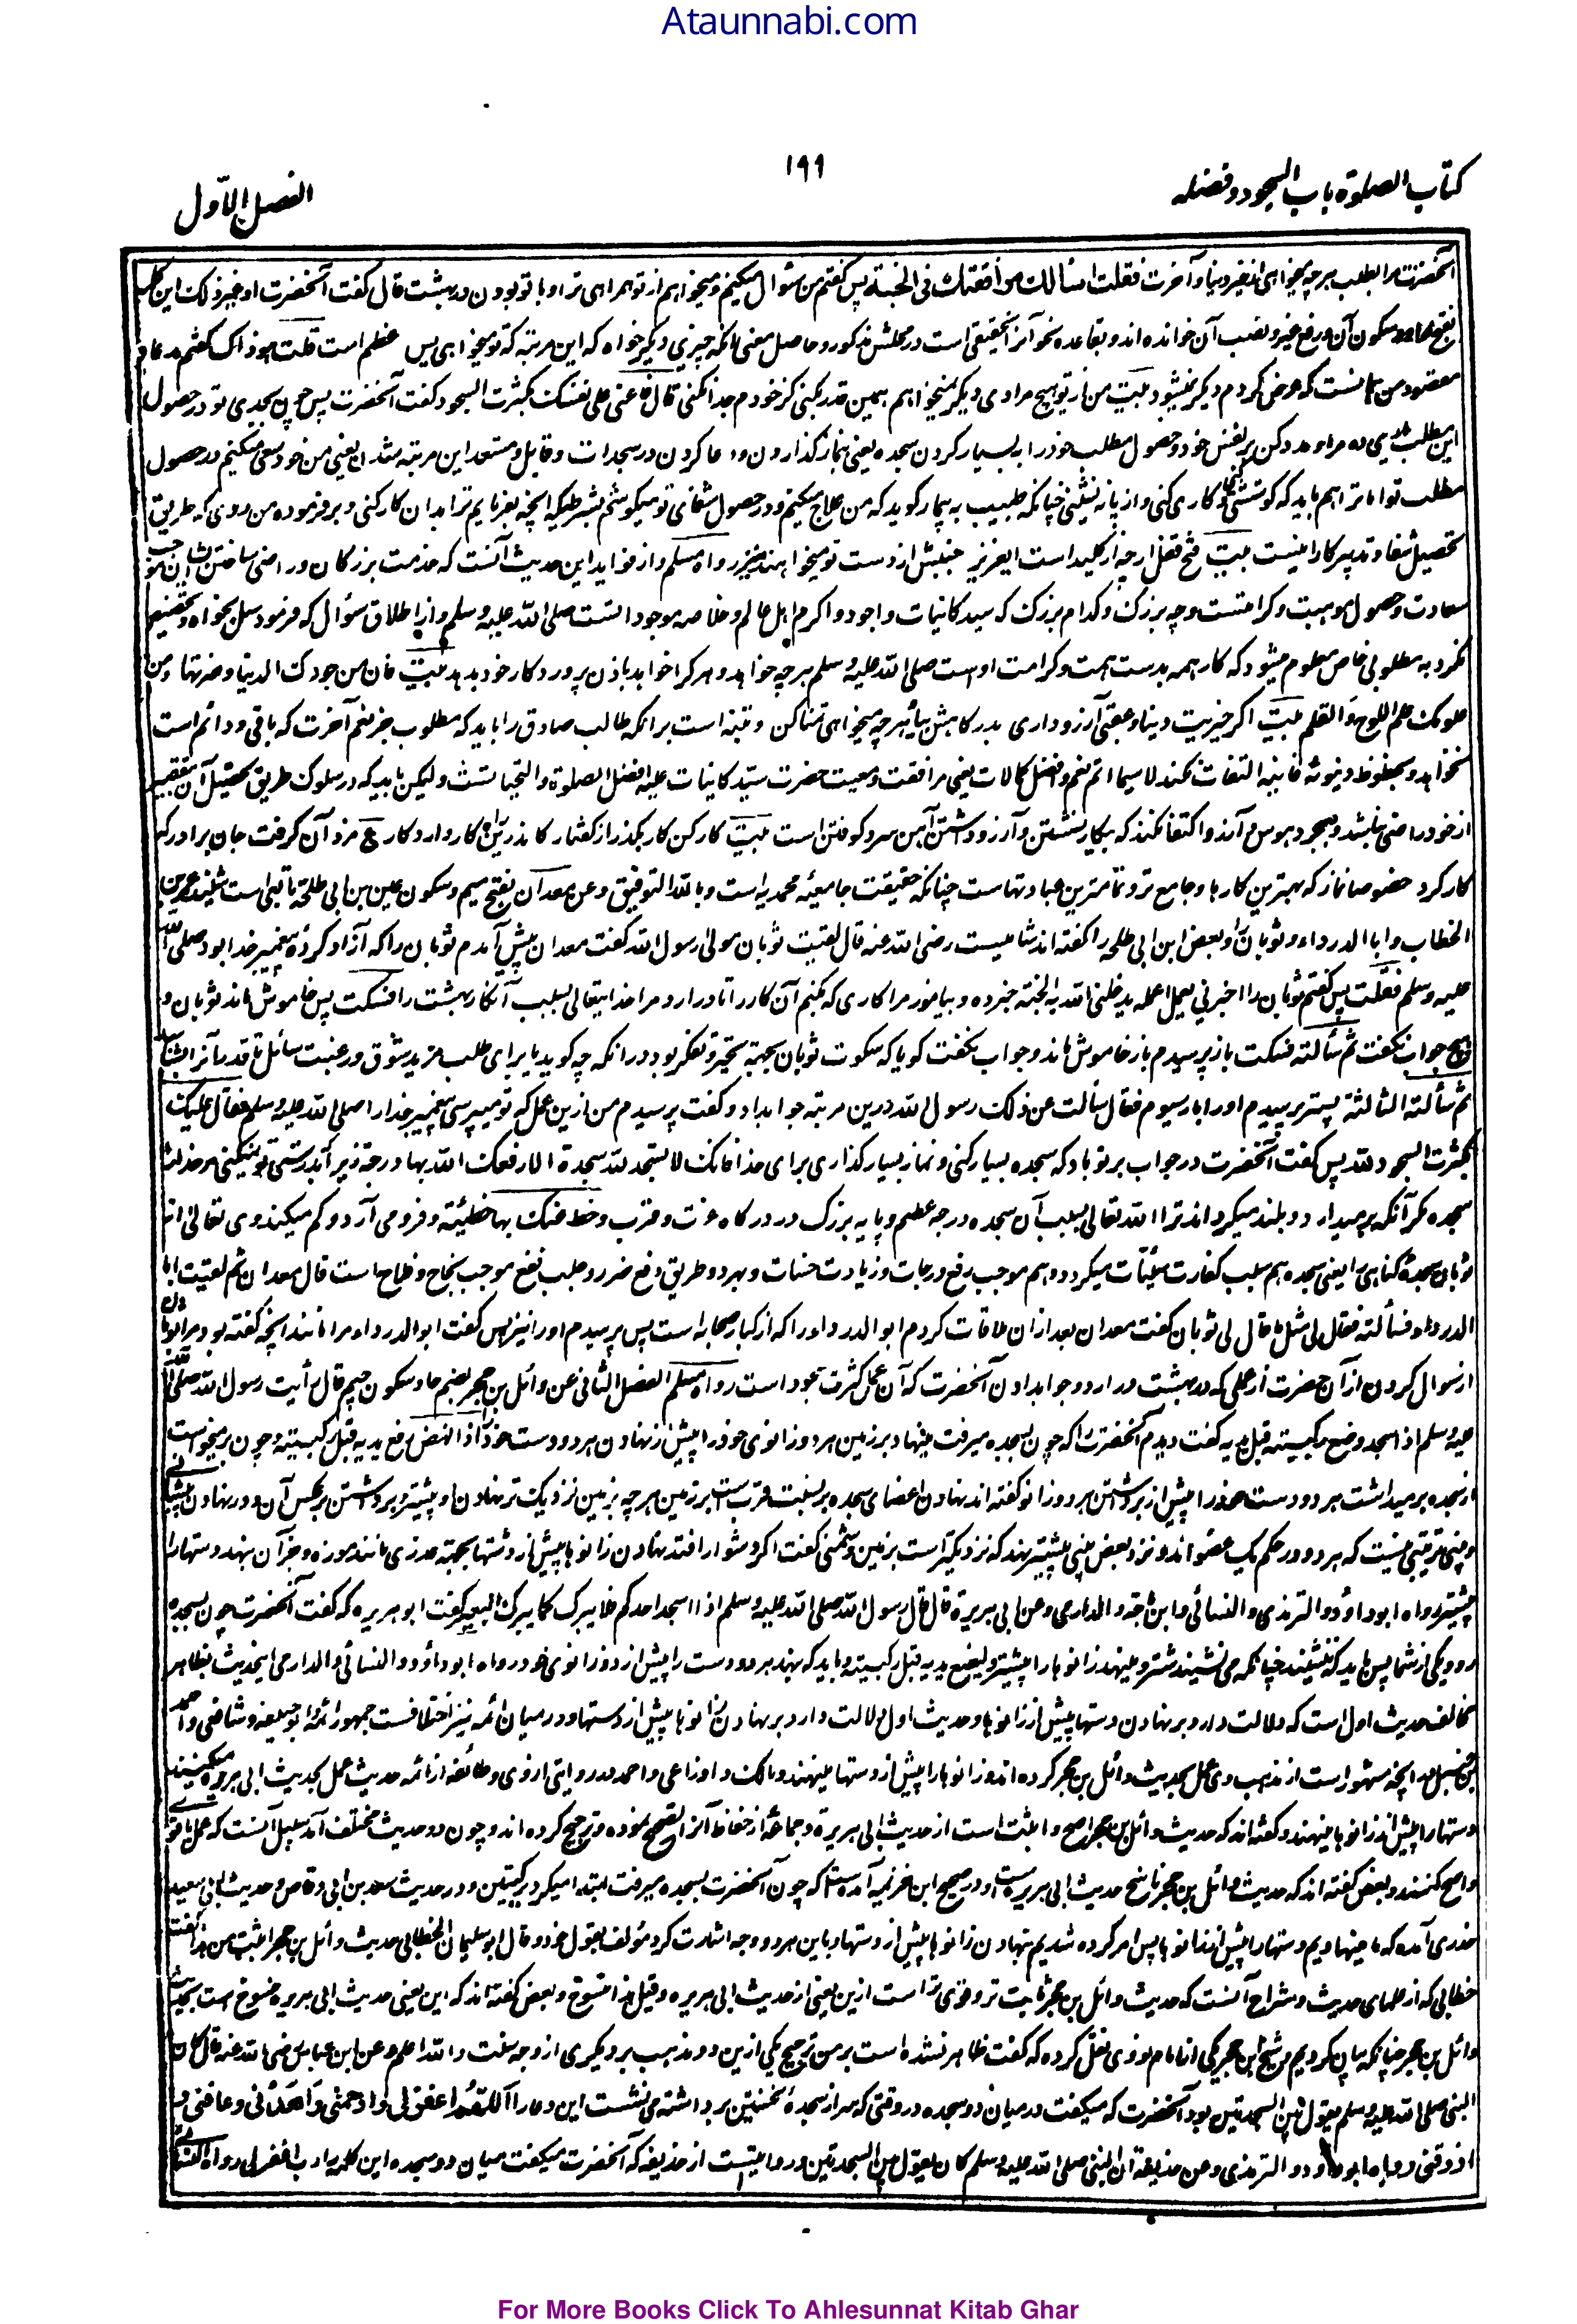 Ataunnabi.com
۱۹۹
کتاب الصلوة باب السجود و فضله
الفصل الاول
آنحضرت مرا بطلب هر چه میخواهی از خیر دنیا و آخرت فقلت اسألك مرافقتك فی الجنة پس گفتم من سوال میکنم و میخواهم از تو همراهی ترا و با تو بودن در بهشت قال گفت آنحضرت او غیر ذلک این کلمه
بفتح همزه و سکون آن و رفع غیر و نصب آن خوانده اند و بقاعده نحو آنرا تحقیقی است در محلش مذکور و حاصل معنی آنکه چیزی دیگر خواه که این مرتبه که تو میخواهی بس عظیم است قلت هو ذاک گفتم
مقصود من همانست که عرض کردم دیگر نمیشود بیت من از تو هیچ مرادی دیگر نمیخواهم همین قدر بکنی کز خودم جدا نکنی قال فاعنی علی نفسک بکثرت السجود گفت آنحضرت پس چون بجدی تو در حصول
این مطلب یاری ده مرا و مدد کن بر نفس خود و حصول مطلب خود را به بسیار کردن سجده یعنی بنماز گذاردن و دعا کردن در سجدات و قابل و مستعد این مرتبه شدن یعنی من خود سعی میکنم در حصول
مطلب تو اما ترا هم باید که کوشش و کاری کنی و از پا نه نشینی چنانکه طبیب به بیمار گوید که من علاج میکنم و در حصول شفای تو میکوشم بشرطیکه آنچه بفرمایم ترا بدان کار کنی و بر فرموده من روی که طریق
تحصیل شفا و تدبیر کار اینست بیت فتح قفل ارچه از کلید است ای عزیز جنبش از دست تو میخواهند نیز رواه مسلم و از فواید این حدیث آنست که خدمت بزرگان و راضی ساختن ایشان موجب
سعادت و حصول موهبت و کرامتست و چه بزرگ و کدام بزرگ که سید کائنات و اجود و اکرم اهل عالم و خلاصه موجوداتست صلی الله علیه و سلم و از اطلاق سؤال که فرمود سل بخواه و تخصیص
نکرد به مطلوبی خاص معلوم میشود که کار همه بدست همت و کرامت اوست صلی الله علیه و سلم هر چه خواهد و هر کرا خواهد باذن پروردگار خود بدهد بیت فان من جودک الدنیا و ضرتها و من
علومک علم اللوح و القلم بیت اگر خیریت دنیا و عقبی آرزو داری بدرگاهش بیا و هر چه میخواهی تمنا کن و تنبیه است بر آنکه طالب صادق را باید که مطلوب جز نعیم آخرت که باقی و دائم است
نخواهد و بحظوظ دنیویه فانیه التفات نکند لاسیما اتم نعم و افضل کمالات یعنی مرافقت و معیت حضرت سید کائنات علیه افضل الصلوة و التحیات و لیکن باید که در سلوک طریق تحصیل آن بتقصیر
از خود راضی نباشد و بمجرد هوس و آرزو اکتفا نکند که بیکار نشستن و آرزو داشتن آهن سرد کوفتن است بیت کار کن کار بگذر از گفتار کاندرین راه کار دارد کار ع مزد آن گرفت جان برادر که
کار کرد خصوصا نماز که بهترین کارها و جامع تر و تمامترین عبادتهاست چنانکه حقیقت جامعیه محمدیه است و بالله التوفیق وعن معدان بفتح میم و سکون عین بن ابی طلحة تابعی است شنید عمر بن
الخطاب و ابا الدرداء و ثوبان را و بعضی ابن ابی طلحه را گفته اند شامیست رضی الله عنه قال لقیت ثوبان مولی رسول الله گفت معدان پیش آمدم ثوبان را که آزاد کرده پیغمبر خدا بود صلی الله
علیه وسلم فقلت پس گفتم ثوبان را اخبرنی بعمل اعمله یدخلنی الله به الجنة خبر ده و بیاموز مرا کاری که بکنم آن کار را تا در آرد مرا خدایتعالی بسبب آن کار بهشت را فسکت پس خاموش ماند ثوبان و
هیچ جواب نگفت ثم سألته فسکت باز پرسیدم باز خاموش ماند و جواب نگفت گویا که سکوت ثوبان بجهت تحیر و تفکر بود در آنکه چه گوید یا برای طلب مزید شوق و رغبت سائل تا قدر آنرا بشناسد
ثم سألته الثالثة پستر پرسیدم او را بار سیوم فقال سألت عن ذلک رسول الله درین مرتبه جواب داد و گفت پرسیدم من ازین عمل که تو میپرسی پیغمبر خدا را صلی الله علیه وسلم فقال علیک
بکثرت السجود لله پس گفت آنحضرت در جواب بر تو باد که سجده بسیار کنی و نماز بسیار گذاری برای خدا فانک لا تسجد لله سجدة الا رفعک الله بها درجة زیرا که بدرستی تو نمیکنی مر خدا را
سجده مگر آنکه بر میدارد و بلند میگرداند ترا الله تعالی بسبب آن سجده درجه عظیم و پایه بزرگ در درگاه عزت و قرب و حط عنک بها خطیئة و فرو می آرد و کم میکند وی تعالی از تو
بدان سجده گناهی را یعنی سجده هم سبب کفارت سیئات میگردد و هم موجب رفع درجات و زیادت حسنات و بهر دو طریق دفع ضرر و جلب نفع موجب نجاح و فلاح است قال معدان ثم لقیت ابا
الدرداء فسألته فقال لی مثل ما قال لی ثوبان گفت معدان بعد ازان ملاقات کردم ابو الدرداء را که از کبار صحابه است پس پرسیدم او را نیز پس گفت ابو الدرداء مرا مانند آنچه گفته بود مرا ثوبان
از سوال کردن از آن حضرت از عملی که در بهشت در آرد و جواب دادن آنحضرت که آن عمل کثرت سجود است رواه مسلم الفصل الثانی عن وائل بن حجر بضم حا و سکون جیم قال رأیت رسول الله صلی الله
علیه وسلم اذا سجد وضع رکبتیه قبل یدیه گفت دیدم آنحضرت را که چون بسجده میرفت مینهاد بر زمین هر دو زانوی خود را پیش از نهادن هر دو دست خود و اذا نهض رفع یدیه قبل رکبتیه و چون بر میخواست
از سجده بر میداشت هر دو دست خود را پیش از برداشتن هر دو زانو گفته اند نهادن اعضای سجده بر نسبت قرب است بر زمین هر چه بزمین نزدیک تر نهادن او پیشتر و برداشتن بر عکس آن و در نهادن پیشانی
و بینی ترتیبی نیست که هر دو در حکم یک عضو اند و نزد بعضی بینی پیشتر نهد که نزدیکتر است بزمین و شمنی گفت اگر دشوار افتد نهادن زانوها پیش از دستها بجهت عذری مانند موزه و جز آن بنهد دستها را
پیشتر رواه ابو داؤد و الترمذی و النسائی و ابن ماجة و الدارمی وعن ابی هریرة قال قال رسول الله صلی الله علیه وسلم اذا سجد احدکم فلا یبرک کما یبرک البعیر گفت ابو هریره که گفت آنحضرت چون بسجده
رود یکی از شما پس باید که ننشیند چنانکه می نشیند شتر و مینهد زانوها را پیشتر و لیضع یدیه قبل رکبتیه و باید که بنهد هر دو دست را پیش از دو زانوی خود رواه ابو داؤد و النسائی و الدارمی این حدیث بظاهر
مخالف حدیث اول است که دلالت دارد بر نهادن دستها پیش از زانوها و حدیث اول دلالت دارد بر نهادن زانوها پیش از دستها و در میان ائمه نیز اختلافست جمهور ائمه و ابو حنیفه و شافعی و احمد
بن حنبل در آنچه مشهور است از مذهب وی عمل بحدیث وائل بن حجر کرده اند و زانوها را پیش از دستها مینهند و مالک و اوزاعی و احمد در روایتی از وی و طائفه از ائمه حدیث عمل بحدیث ابی هریره میکنند
دستها را پیش از زانوها مینهند و گفته اند که حدیث وائل بن حجر اصح و اثبت است از حدیث ابی هریرة و جماعه از حفاظ آنرا تصحیح نموده و ترجیح کرده اند و چون دو حدیث مختلف آمد سبیل آنست که عمل باقوی
و اصح کنند و بعضی گفته اند که حدیث وائل بن حجر ناسخ حدیث ابی هریره است و در صحیح ابن خزیمه آمده است که چون آنحضرت بسجده میرفت ابتدا میکرد برکبتین و در حدیث سعد بن ابی وقاص و حدیث ابی سعید
خدری آمده که ما مینهادیم دستها را پیش از زانوها پس امر کرده شدیم بنهادن زانوها پیش از دستها و باین هر دو وجه اشارت کرد مؤلف بقول خود و قال ابو سلیمان الخطابی حدیث وائل بن حجر اثبت من هذا گفت
خطابی که از علمای حدیث و شراح آنست که حدیث وائل بن حجر ثابت تر و قوی تر است ازین یعنی از حدیث ابی هریره و قیل هذا منسوخ و بعضی گفته اند که این یعنی حدیث ابی هریره منسوخ است بحدیث
وائل بن حجر چنانکه بیان کردیم و شیخ ابن حجر مکی از امام نووی نقل کرده که گفت ظاهر نشده است بر من ترجیح یکی ازین دو مذهب بر دیگری از وجه سنت و الله اعلم وعن ابن عباس رضی الله عنه قال کان
النبی صلی الله علیه وسلم یقول بین السجدتین بود آنحضرت که میگفت در میان دو سجده در وقتی که سر از سجده نخستین برداشته می نشست این دعا را اللهم اغفر لی و ارحمنی و اهدنی و عافنی و
ارزقنی رواه ابو داود و الترمذی وعن حذیفة ان النبی صلی الله علیه وسلم کان یقول بین السجدتین و روایتست از حذیفه که آنحضرت میگفت میان دو سجده این کلمه را رب اغفر لی رواه النسائی
For More Books Click To Ahlesunnat Kitab Ghar